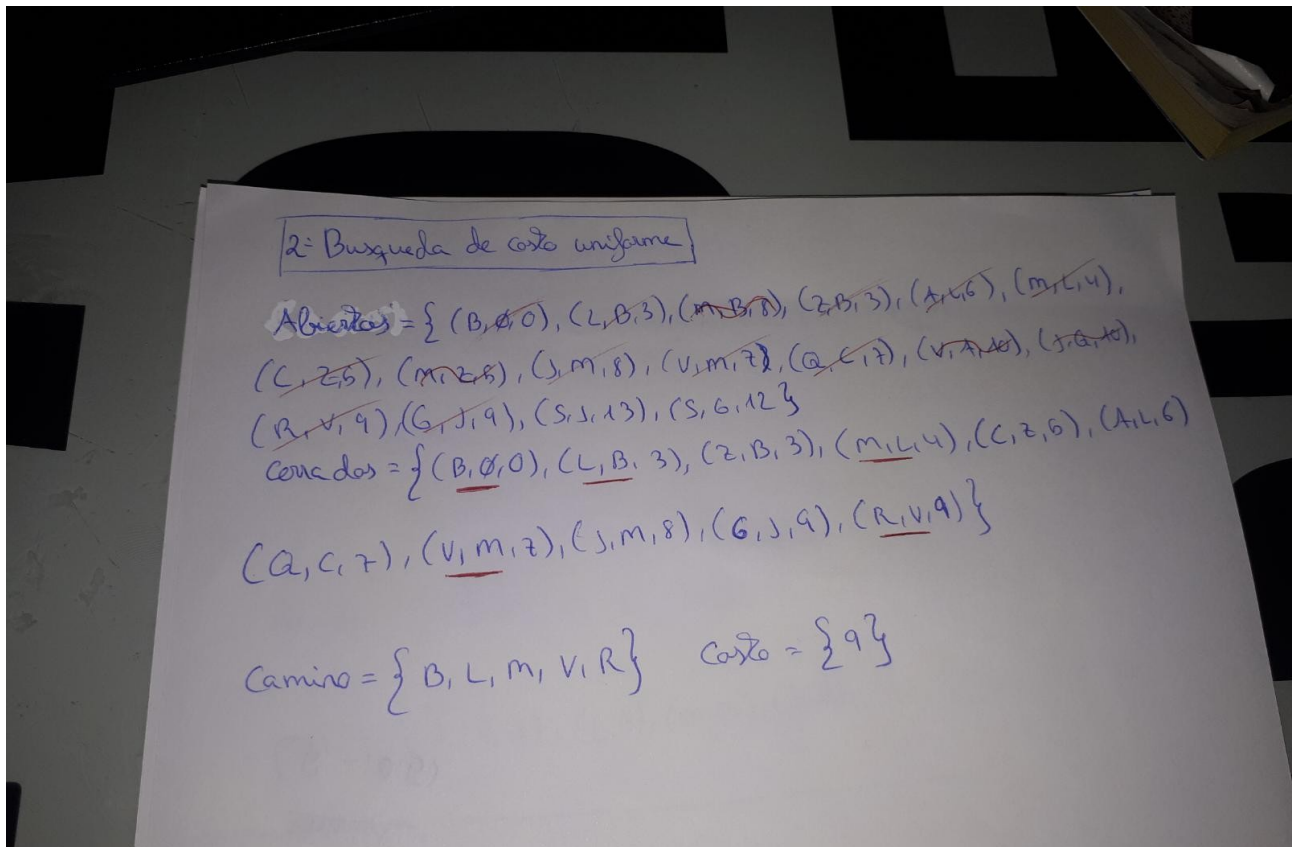 2= Busqueda de costo uniforme
Abiertos = { (B,Ø,0), (L,B,3), (M,B,8), (Z,B,3), (A,L,6), (M,L,4),
(C,Z,5), (M,Z,5), (J,M,8), (V,M,7), (Q,C,7), (V,A,10), (J,Q,10),
(R,V,9), (G,J,9), (S,J,13), (S,G,12}
Cerrados = {(B,Ø,0), (L,B,3), (Z,B,3), (M,L,4), (C,Z,5), (A,L,6)
(Q,C,7), (V,M,7), (J,M,8), (G,J,9), (R,V,9)}
Camino = { B, L, M, V, R} Costo = {9}